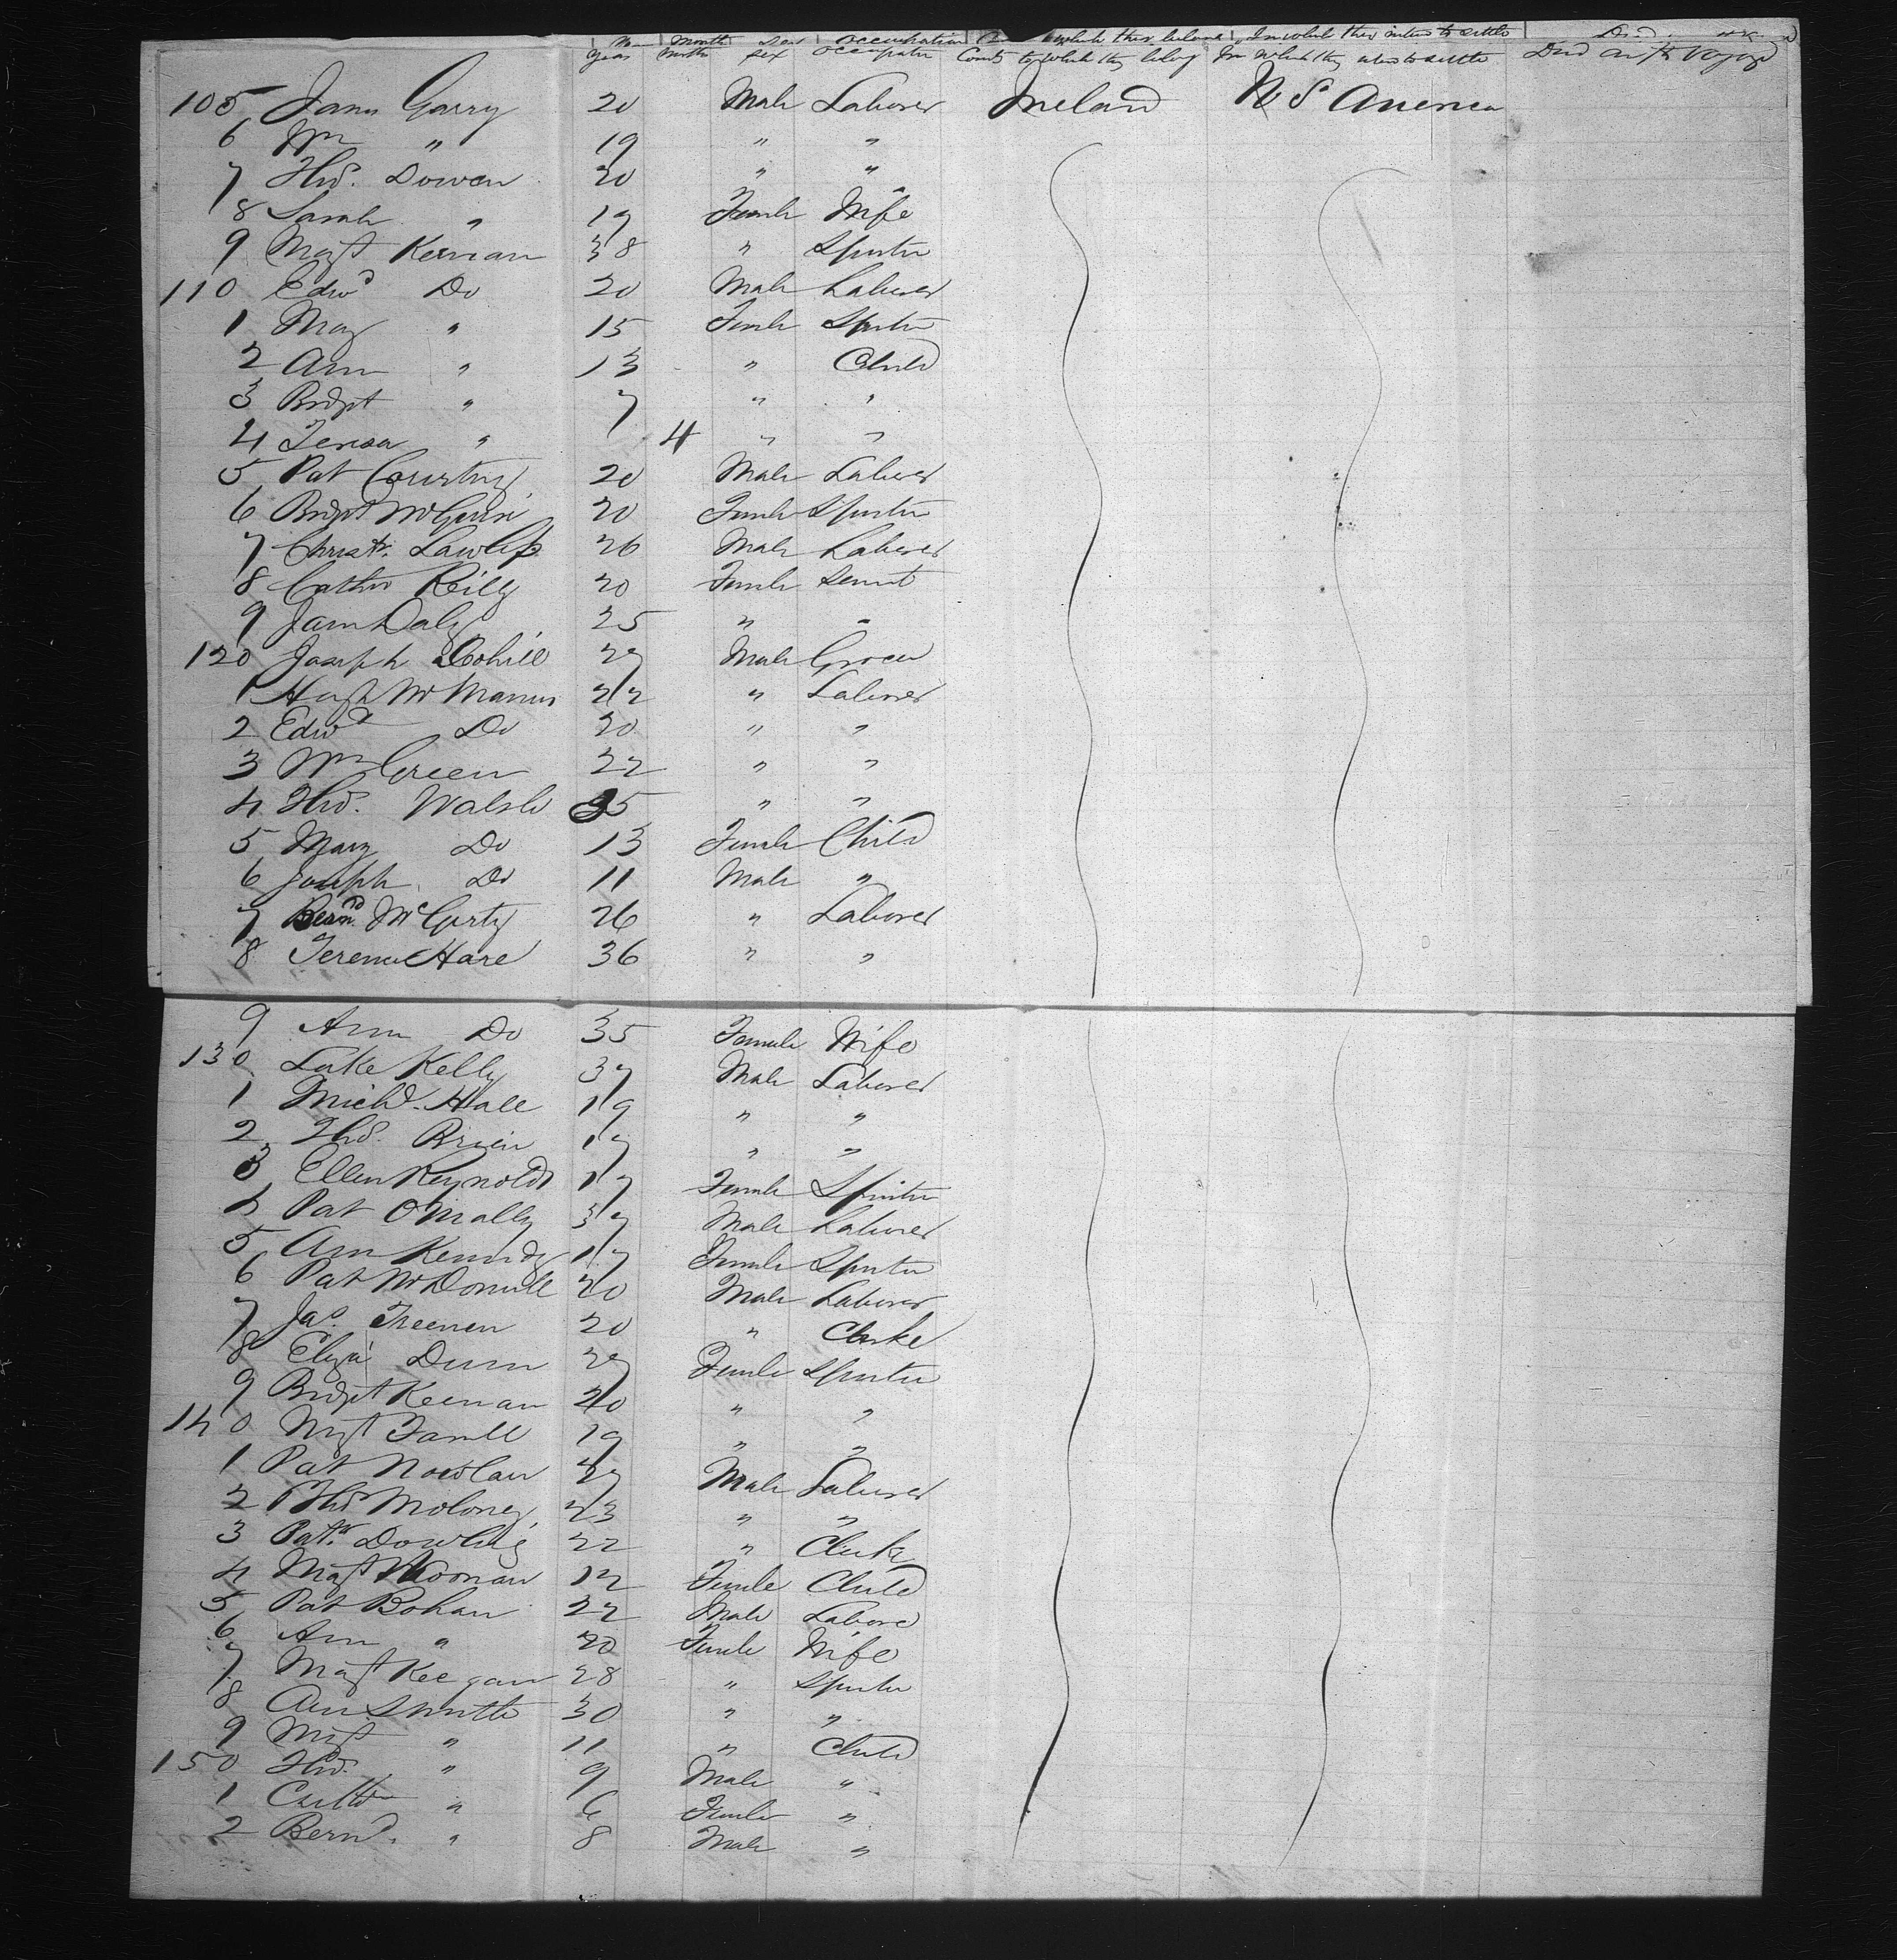 Years Month Sex Occupation Country to which they belong In which they intend to settle Died on the Voyage
105 James Garry 20 Male Laborer Ireland U S America
6 Wm " 19 " "
7 Thos. Dowen 20 " "
8 Sarah " 19 Female Wife
9 Magt Kernan 38 " Spinster
110 Edwd Do 20 Male Laborer
1 Mary " 15 Female Spinster
2 Ann " 13 " Child
3 Bridgt " 7 " "
4 Teresa " 4 " "
5 Pat Courtney 20 Male Laborer
6 Bridgt 20 Female Spinster
7 Christr. Lawless 26 Male Laborer
8 Cathn Reilly 20 Female Servnt
9 Jam Daly 25 " "
120 Joseph Cohill 27 Male Grocer
1 Hugh McManus 22 " Laborer
2 Edwd Do 20 " "
3 Wm Green 22 " "
4 Thos. Walsh 35 " "
5 Mary Do 13 Female Child
6 Joseph Do 11 Male "
7 Bernd McGurty 26 " Laborer
8 Terence Hare 36 " "
9 Ann Do 35 Female Wife
130 Luke Kelly 37 Male Laborer
1 Michl. Hall 19 " "
2 Thos. Brien 17 " "
3 Ellen Reynolds 17 Female Spinster
4 Pat O'Mally 37 Male Laborer
5 Ann Kennedy 17 Female Spinster
6 Pat McDonnell 20 Male Laborer
7 Jas. Freenen 20 " Clerke
8 Eliza Dunn 27 Female Spinster
9 Bridgt Keenan 20 " "
140 Mgt Farrell 19 " "
1 Pat Nowlan 27 Male Laborer
2 Thos Moloney 23 " "
3 Patk. Dowling 22 " Clerk
4 Magt Noonan 12 Female Child
5 Pat Bohan 22 Male Labore
6 Ann " 20 Female Wife
7 Magt Keegan 28 " Spinster
8 Ann Smith 30 " "
9 Mgt " 11 " Child
150 Thos. " 9 Male "
1 Cathn " 6 Female "
2 Bernd. " 8 Male "